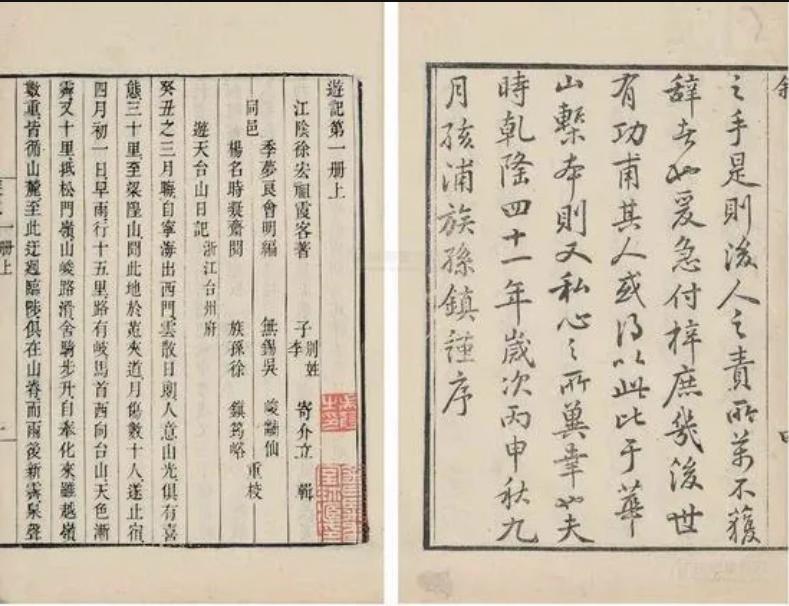 之手是則後人之責所萬不獲
辭者也爰急付梓庶幾後世
有功甫其人或得以此比于華
山槧本則又私心之所冀幸也夫
時乾隆四十一年歲次丙申秋九
月孩浦族孫鎮謹序
遊記第一冊上
江陰徐宏祖霞客著 子李別姓寄介立輯
同邑 季夢良會明編 無錫吳峻仙
楊名時凝齋閱 族孫徐鎮筠峪 重校
遊天台山日記 浙江台州府
癸丑之三月晦自寧海出西門雲散日朗人意山光俱有喜
態三十里至梁隍山聞此地於菟夾道月傷數十人遂止宿
四月初一日早雨行十五里路有岐馬首西向台山天色漸
霽又十里抵松門嶺山峻路滑舍騎步升自奉化來雖越嶺
數重皆循山麓至此迂迴臨陟俱在山脊而雨後新霽泉聲
一冊上